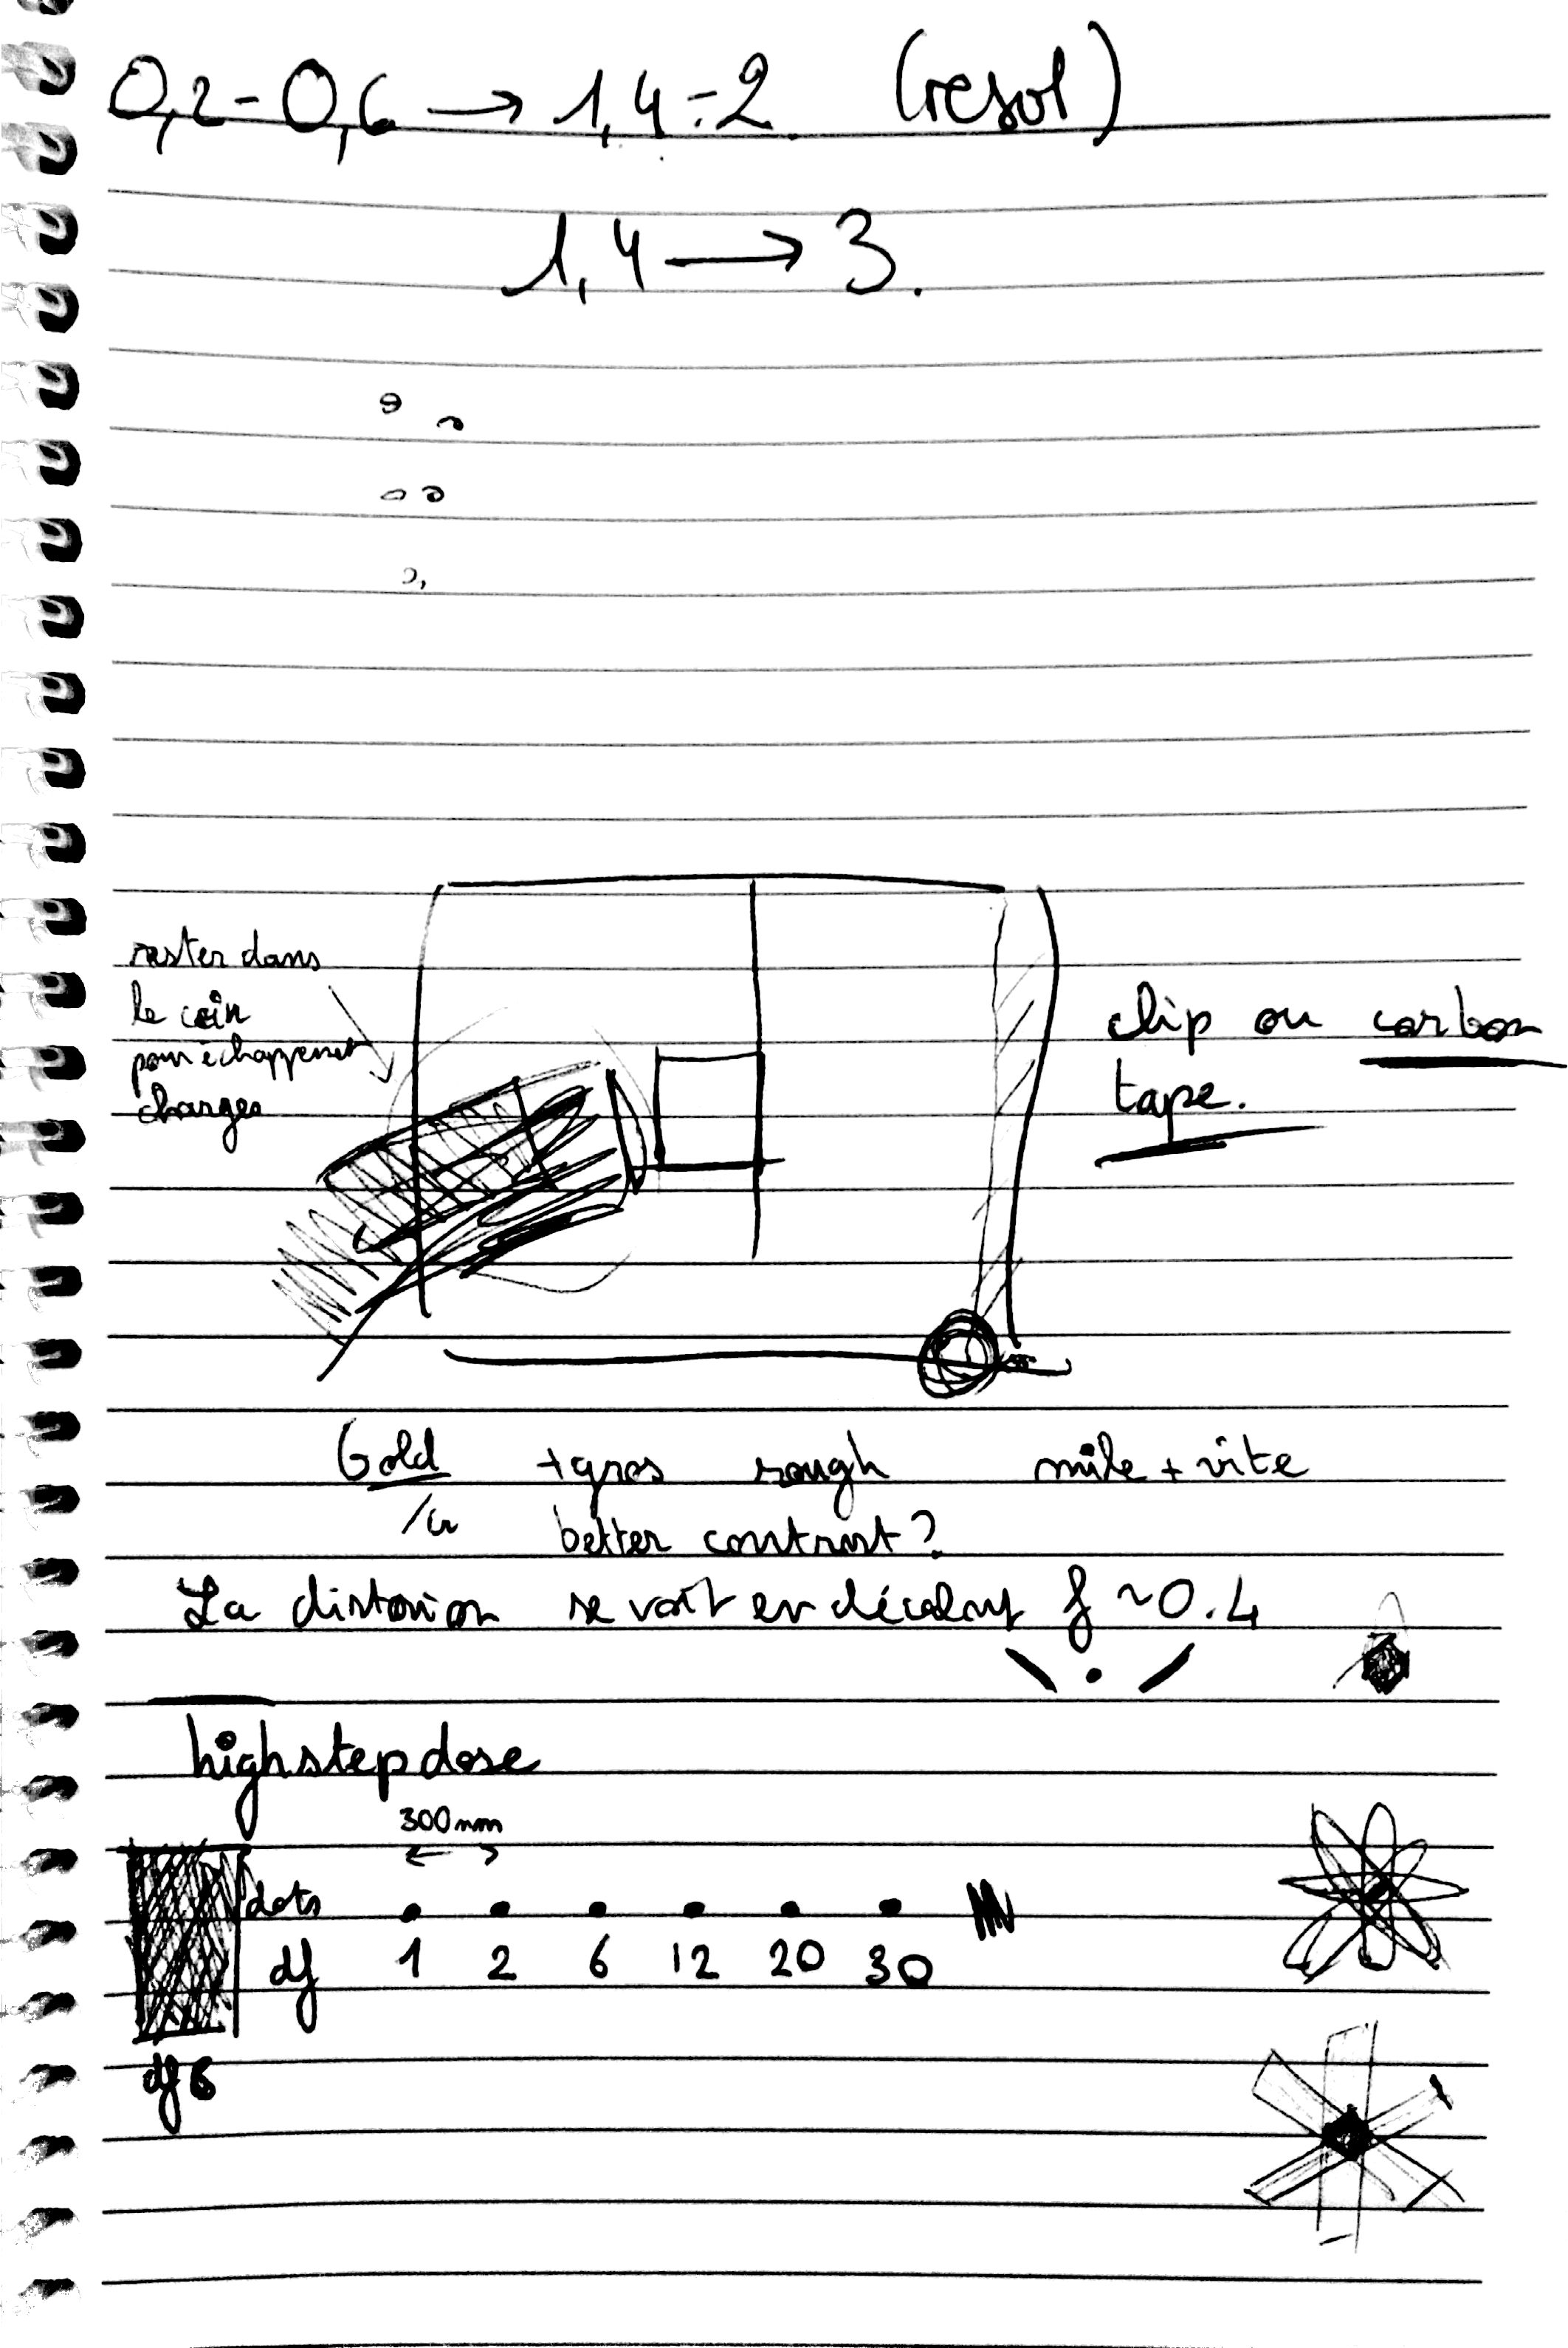 0,2-0,6 → 1,4-2 (resol)
1,4 → 3.
rester dans
le coin
pour échappement
charges
clip ou carbon
tape.
Gold +gros rough mile + vite
better contrast?
La distorsion se voit en décalant f ~0.4
high step dose
300nm
dots
df 1 2 6 12 20 30
df 6